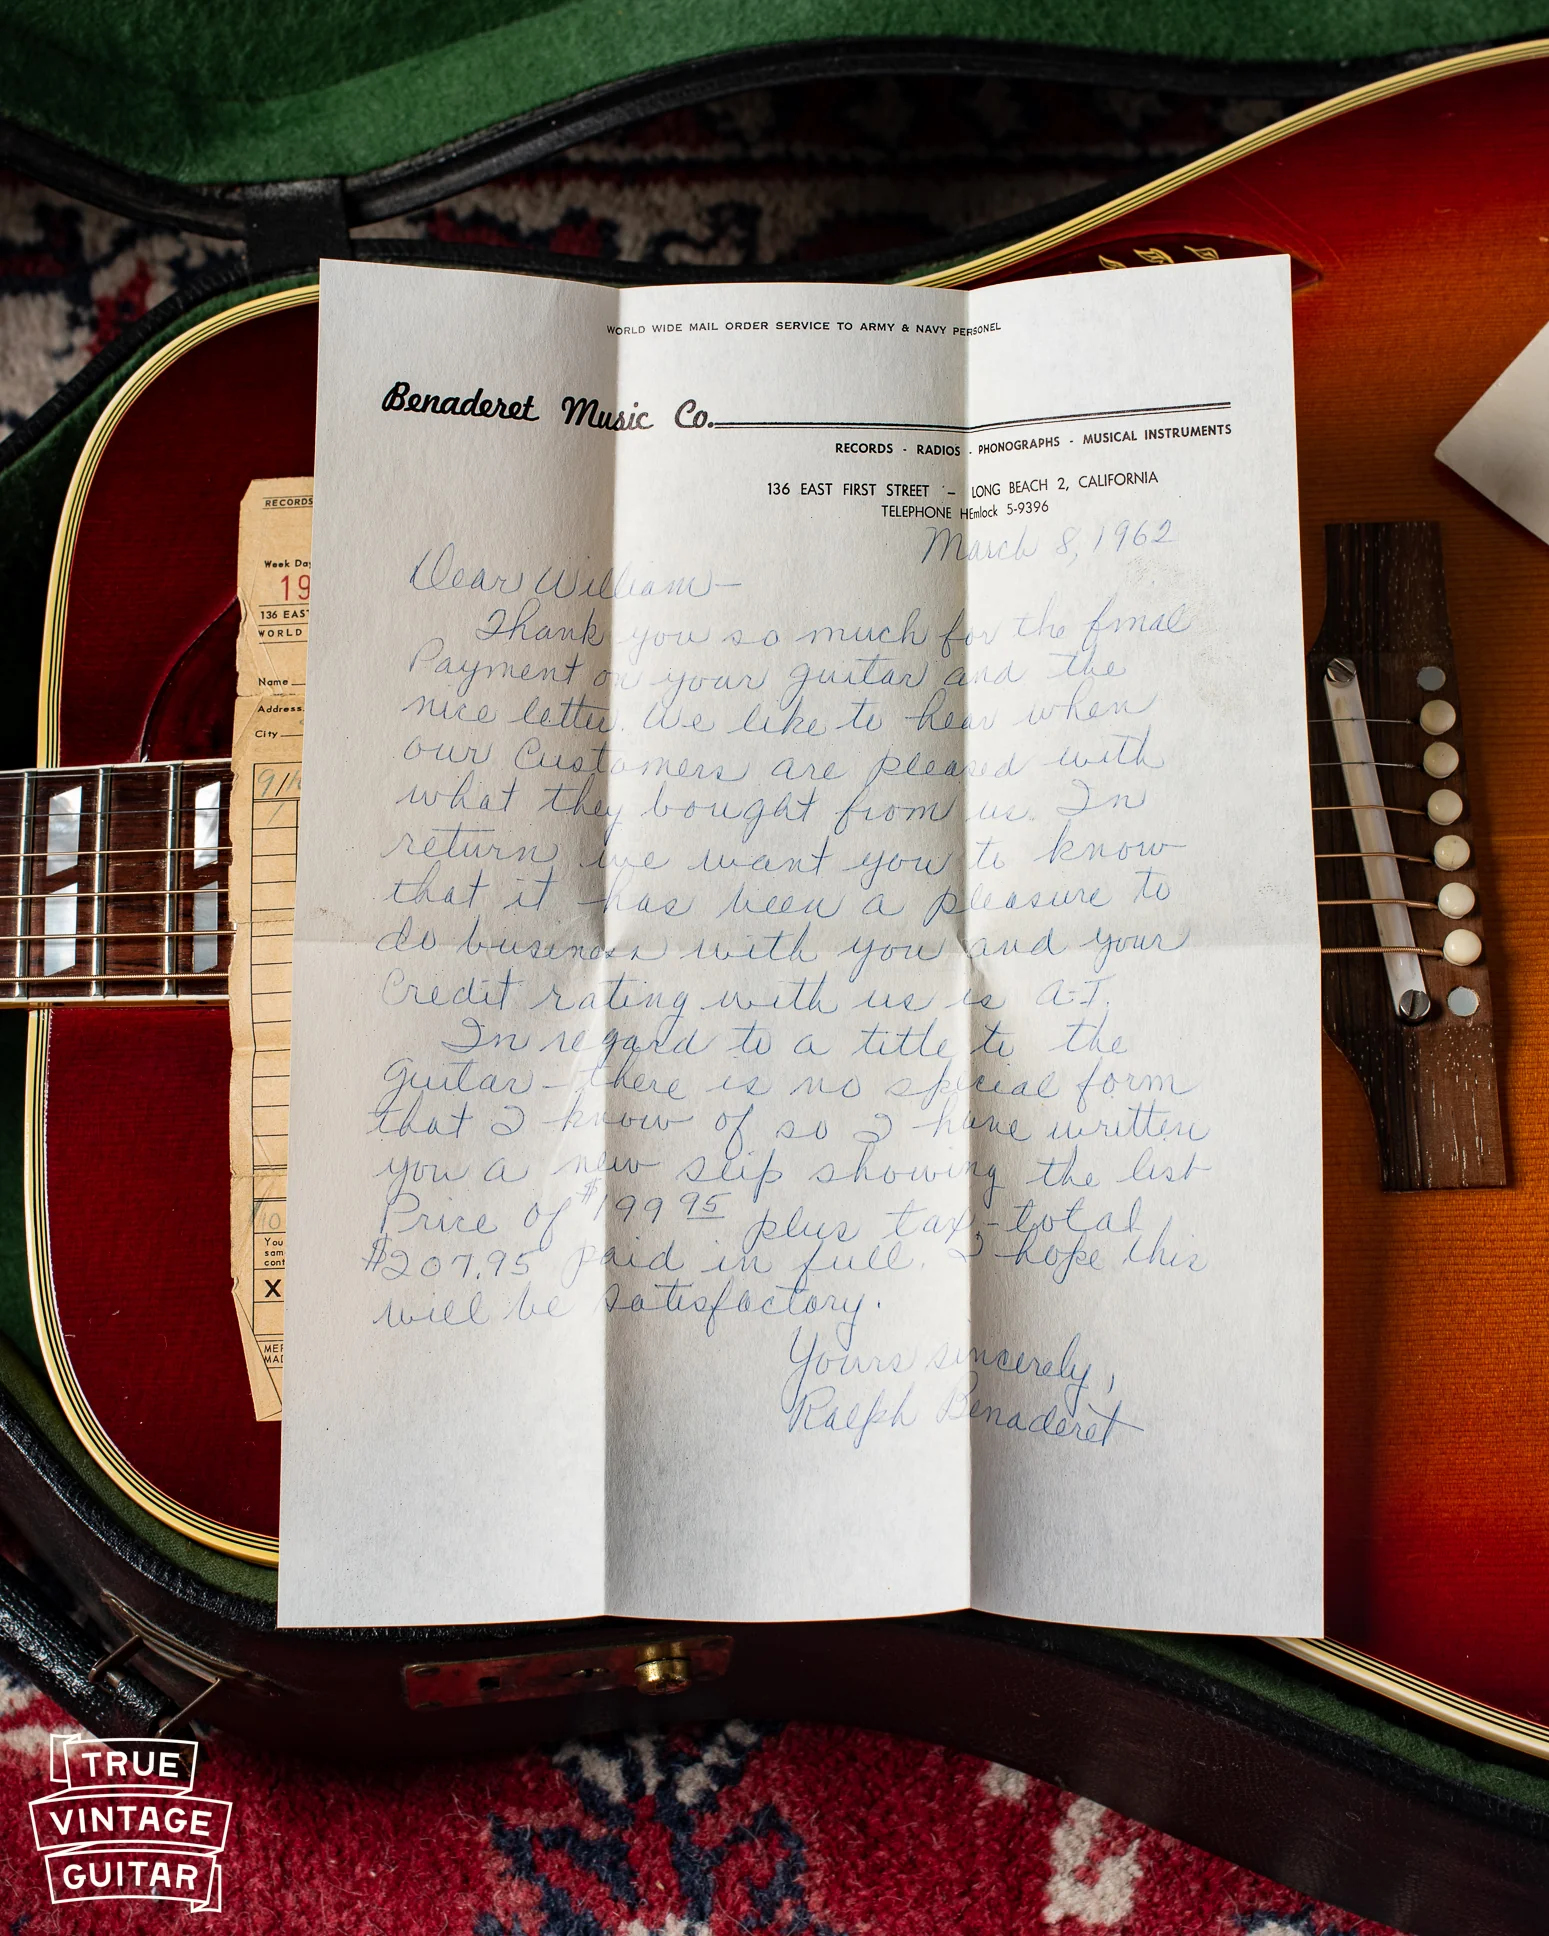 WORLD WIDE MAIL ORDER SERVICE TO ARMY & NAVY PERSONEL
Benaderet Music Co.
RECORDS - RADIOS - PHONOGRAPHS - MUSICAL INSTRUMENTS
136 EAST FIRST STREET – LONG BEACH 2, CALIFORNIA
TELEPHONE HEmlock 5-9396
March 8, 1962
Dear William—
Thank you so much for the final
Payment on your guitar and the
nice letter. We like to hear when
our Customers are pleased with
what they bought from us. In
return we want you to know
that it has been a pleasure to
do business with you and your
Credit rating with us is A-1.
In regard to a title to the
Guitar - there is no special form
that I know of so I have written
you a new slip showing the list
Price of $199 95 plus tax - total
$207.95 paid in full. I hope this
will be satisfactory.
Yours sincerely,
Ralph Benaderet
RECORDS
Week Day
19
136 EAST
WORLD
Name
Address
City
9/
10
You
sam
cont
X
MER
MAD
TRUE
VINTAGE
GUITAR